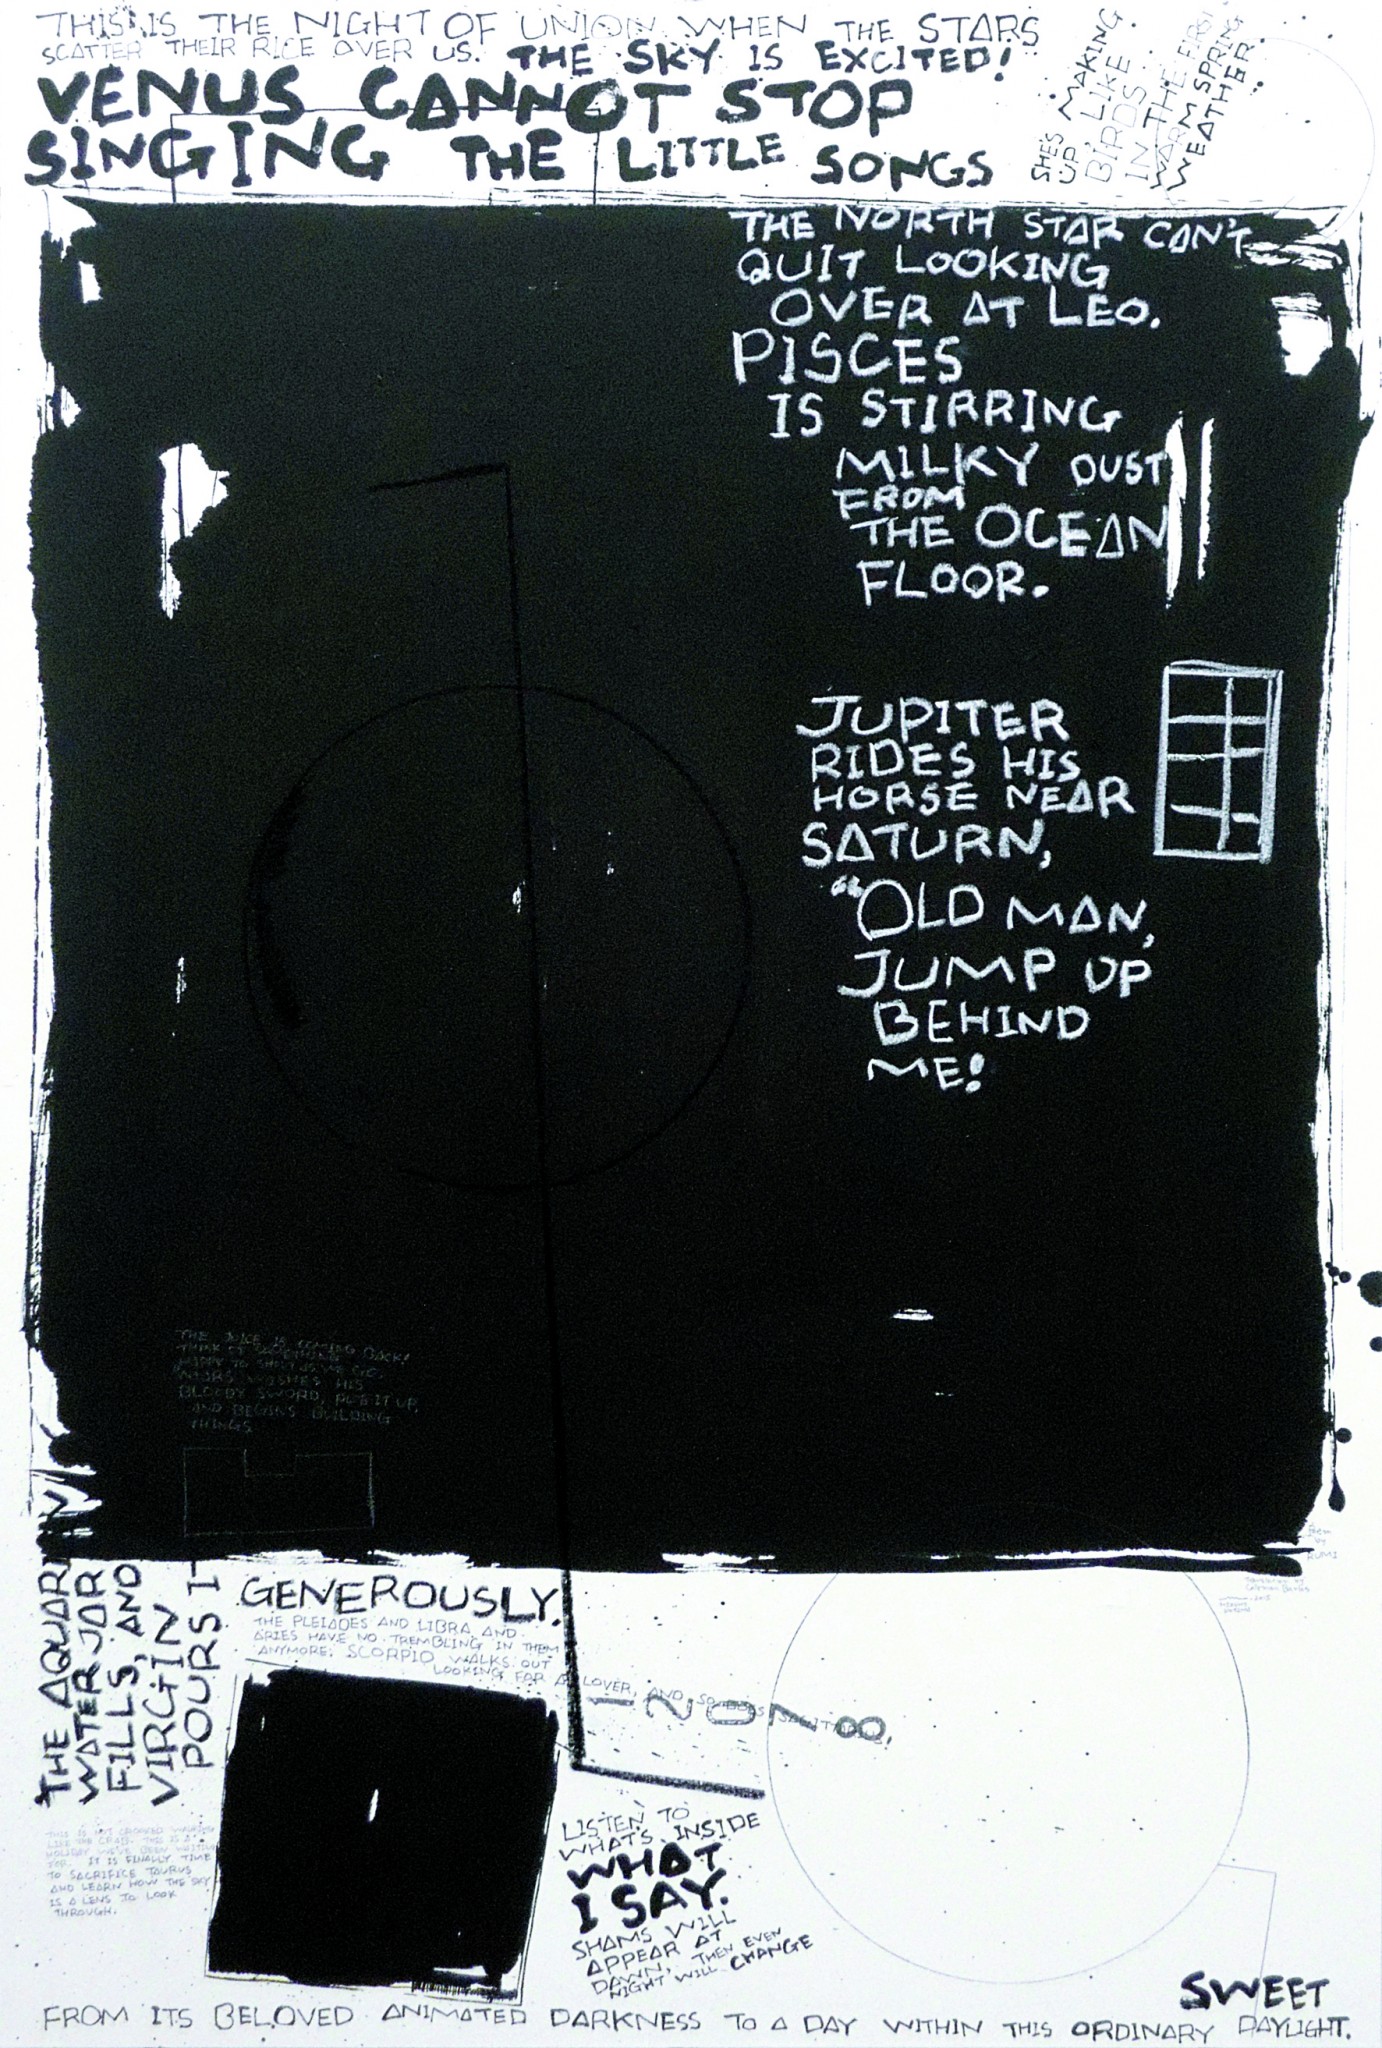 THIS IS THE NIGHT OF UNION WHEN THE STARS
SCATTER THEIR RICE OVER US. THE SKY IS EXCITED!
VENUS CANNOT STOP
SINGING THE LITTLE SONGS
SHE'S MAKING
UP, LIKE
BIRDS
IN THE FIRST
WARM SPRING
WEATHER.
THE NORTH STAR CAN'T
QUIT LOOKING
OVER AT LEO.
PISCES
IS STIRRING
MILKY DUST
FROM
THE OCEAN
FLOOR.
JUPITER
RIDES HIS
HORSE NEAR
SATURN,
"OLD MAN,
JUMP UP
BEHIND
ME!
THE JUICE IS COMING BACK!
THINK OF SOMETHING
HAPPY TO SHOUT AS WE GO.
MARS WASHES HIS
BLOODY SWORD, PUTS IT UP,
AND BEGINS BUILDING
THINGS
THE AQUARIAN
WATER JAR
FILLS, AND
VIRGIN
POURS IT
GENEROUSLY.
THE PLEIADES AND LIBRA AND
ARIES HAVE NO TREMBLING IN THEM
ANYMORE. SCORPIO WALKS OUT
LOOKING FOR A LOVER, AND SO DOES SAGITTARIUS.
12078
THIS IS NOT CROOKED WALKING
LIKE THE CRAB. THIS IS A
HOLIDAY WE'VE BEEN WAITING
FOR. IT IS FINALLY TIME
TO SACRIFICE TAURUS
AND LEARN HOW THE SKY
IS A LENS TO LOOK
THROUGH.
LISTEN TO
WHAT'S INSIDE
WHAT
I SAY.
SHAMS WILL
APPEAR AT
DAWN, THEN EVEN
NIGHT WILL CHANGE
FROM ITS BELOVED ANIMATED DARKNESS TO A DAY WITHIN THIS ORDINARY SWEET DAYLIGHT.
Poem
by
RUMI
Coleman Barks